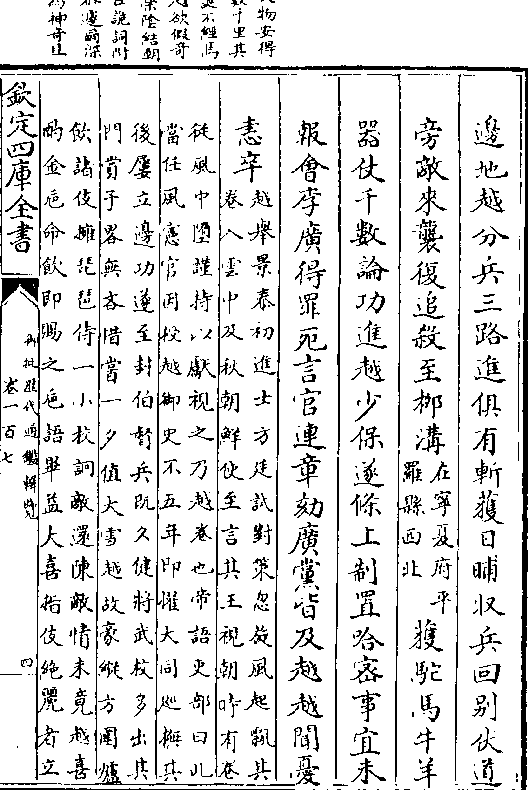 物安得
數千里其
不經馬
欲假哥
陰結朝
說詞附
邊地越分兵三路進俱有斬獲日晡収兵回别伏道
旁敵來襲復追殺至栁溝在寧夏府平
羅縣西北獲駝馬牛羊
器仗千數論功進越少保遂條上制置哈密事宜未
報會李廣得罪死言官連章劾廣黨皆及越越聞憂
恚卒越舉景泰初進士方廷試對策忽旋風起飄其
卷入雲中及秋朝鮮使至言其王視朝時有卷
從風中墮謹持以獻視之乃越卷也帝語吏部曰此
當任風憲官因授越御史不五年即擢大同巡撫其
後屢立邊功遂至封伯督兵既久健將武校多出其
門賞予畧無吝惜嘗一夕值大雪越故豪縱方圍爐
飲諸伎擁琵琶侍一小校詞敵還陳敵情未竟越喜
酌金巵命飲即賜之巵語畢益大喜指伎絶麗者立
欽定四庫全書
御批歷代通鑑輯覽
卷一百七
四